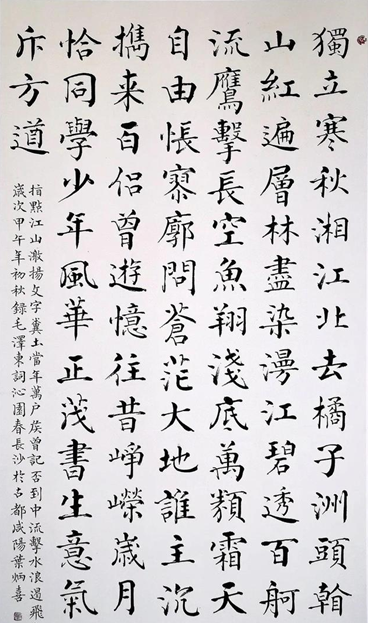 獨立寒秋湘江北去橘子洲頭翰
山紅遍層林盡染漫江碧透百舸
流鷹擊長空魚翔淺底萬類霜天
自由悵寥廓問蒼茫大地誰主沉
攜来百侶曾遊憶往昔崢嶸歲月
恰同學少年風華正茂書生意氣
斥方道
指點江山激揚文字糞土當年萬户矦曾記否到中流擊水浪遏飛
歲次甲午年初秋錄毛澤東詞沁園春長沙於古都咸陽葉炳喜